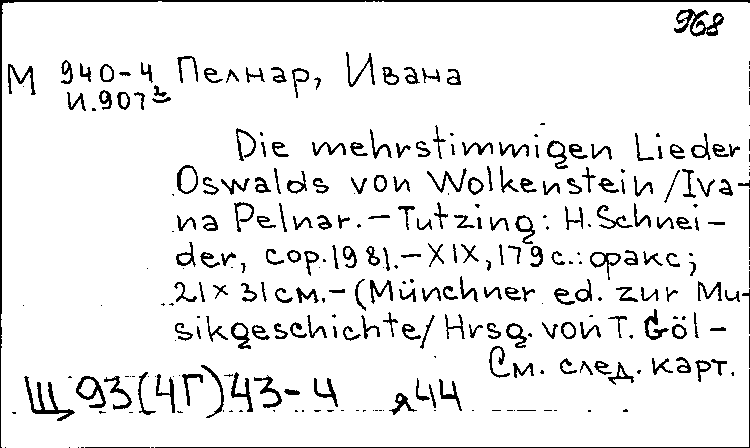 968
М 940-4 Пелнар, Ивана
И.907²
Die mehrstimmigen Lieder
Oswalds von Wolkenstein / Iva-
na Pelnar. – Tutzing: H. Schnei-
der, cop. 1981. – XIX, 179 с.: факс;
21 × 31 см. – (Münchner ed. zur Mu-
sikgeschichte / Hrsg. von T. Göl-
См. след. карт.
Щ 93(4Г)43-4 я44